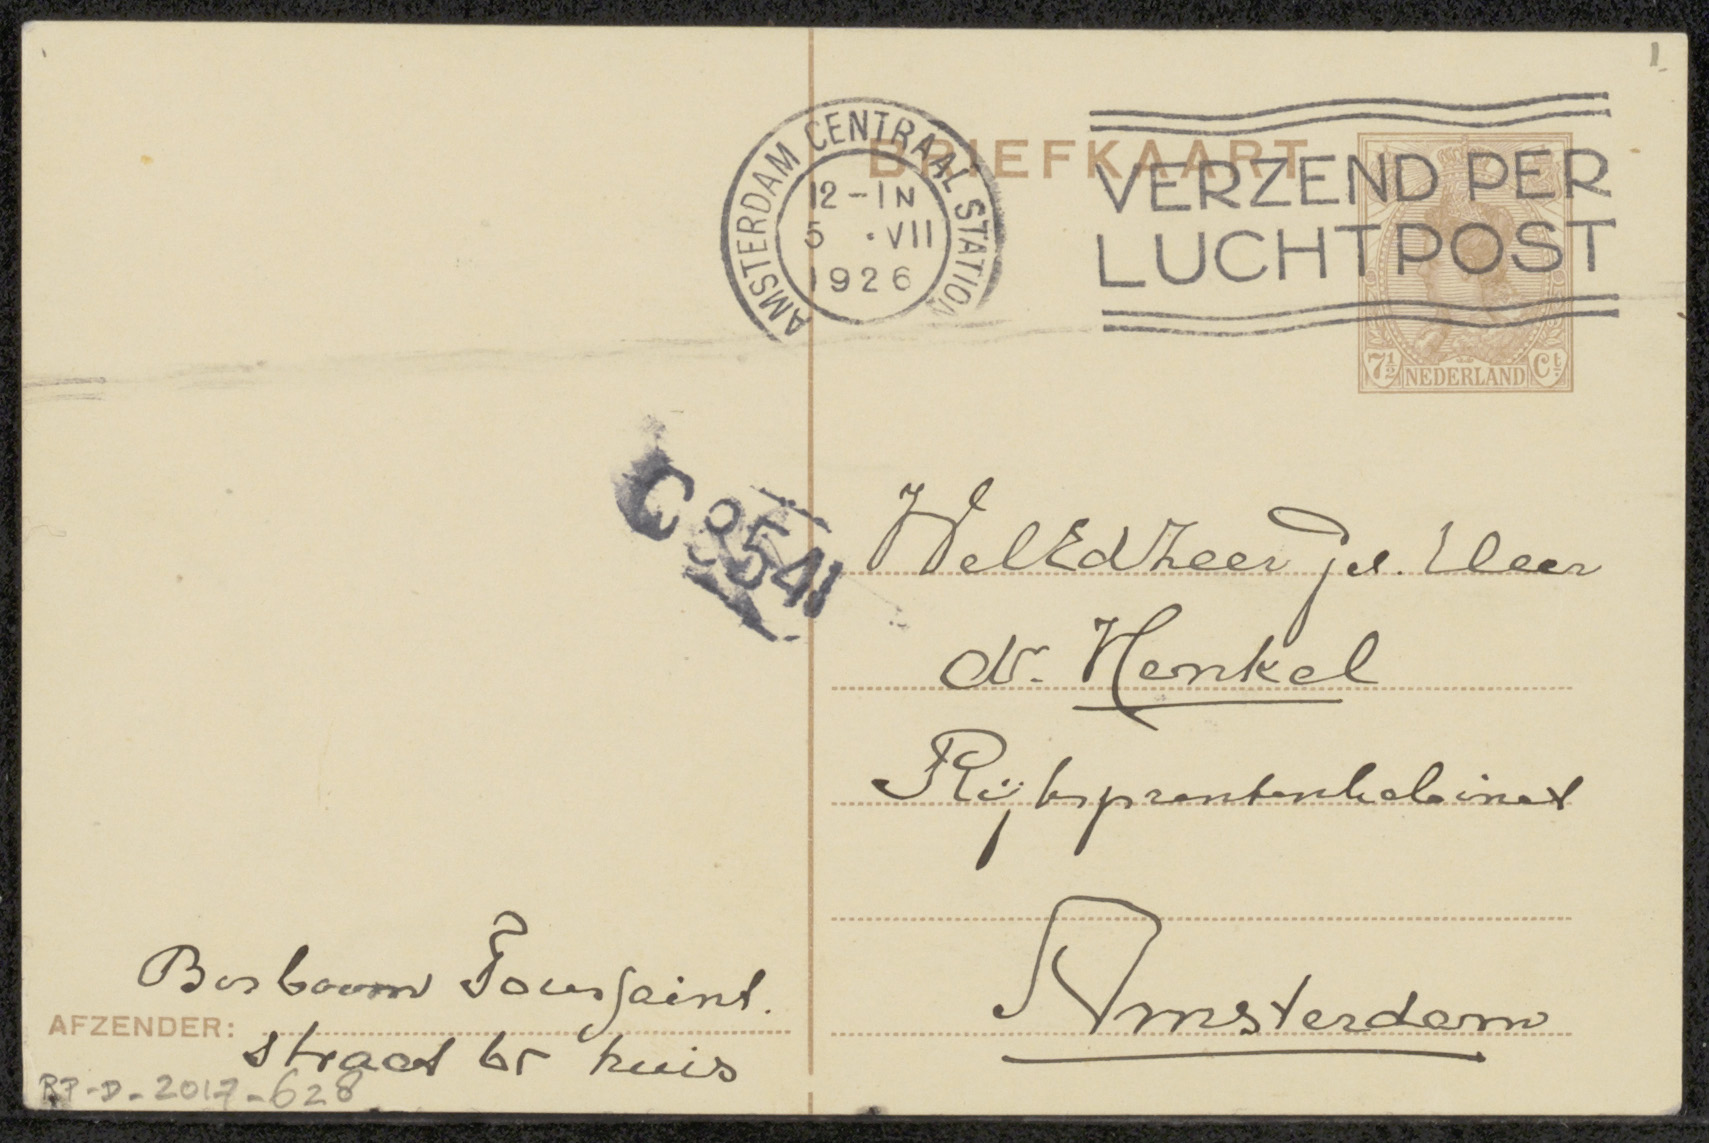 1
AMSTERDAM CENTRAAL STATION
12-1N
5 .VII
1926
BRIEFKAART
VERZEND PER
LUCHTPOST
7½ NEDERLAND Ct.
C 354
WelEdZeer Gel. Heer
dr. Henkel
Rijksprentenkabinet
Amsterdam
Bosboom Toussaint.
AFZENDER:
straat 65 huis
RP-D-2017-628